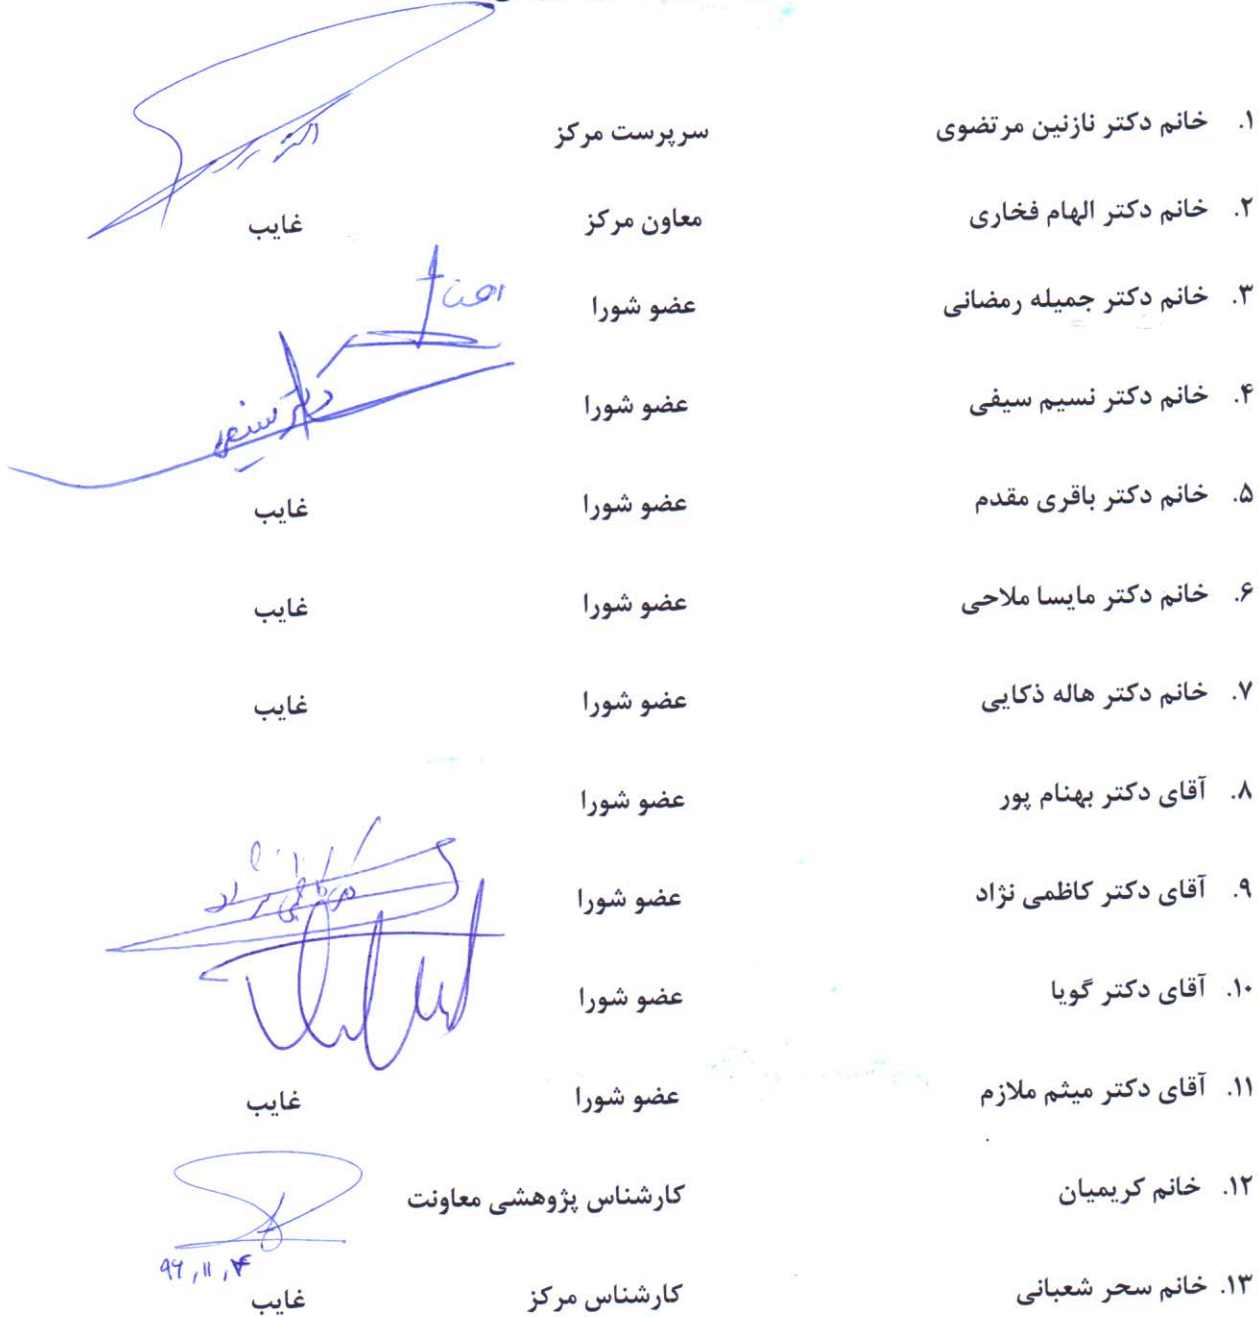 ۱. خانم دکتر نازنین مرتضوی سرپرست مرکز
۲. خانم دکتر الهام فخاری معاون مرکز غایب
۳. خانم دکتر جمیله رمضانی عضو شورا
۴. خانم دکتر نسیم سیفی عضو شورا
۵. خانم دکتر باقری مقدم عضو شورا غایب
۶. خانم دکتر مایسا ملاحی عضو شورا غایب
۷. خانم دکتر هاله ذکایی عضو شورا غایب
۸. آقای دکتر بهنام پور عضو شورا
۹. آقای دکتر کاظمی نژاد عضو شورا دکتر کاظمی نژاد
۱۰. آقای دکتر گویا عضو شورا
۱۱. آقای دکتر میثم ملازم عضو شورا غایب
۱۲. خانم کریمیان کارشناس پژوهشی معاونت
۱۳. خانم سحر شعبانی کارشناس مرکز غایب